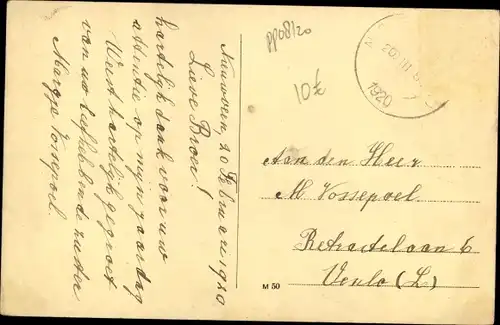 20 Februari 1920.
Lieve Broer!
hartelijk dank voor uw
attentie op mijn jaardag
Weest hartelijk gegroet
van uw liefhebbende zuster
Vossepoel.
PP08/20
10€
20 III
1920
Aan den Heer
M Vossepoel
Retraitelaan 6
Venlo (L)
M 50